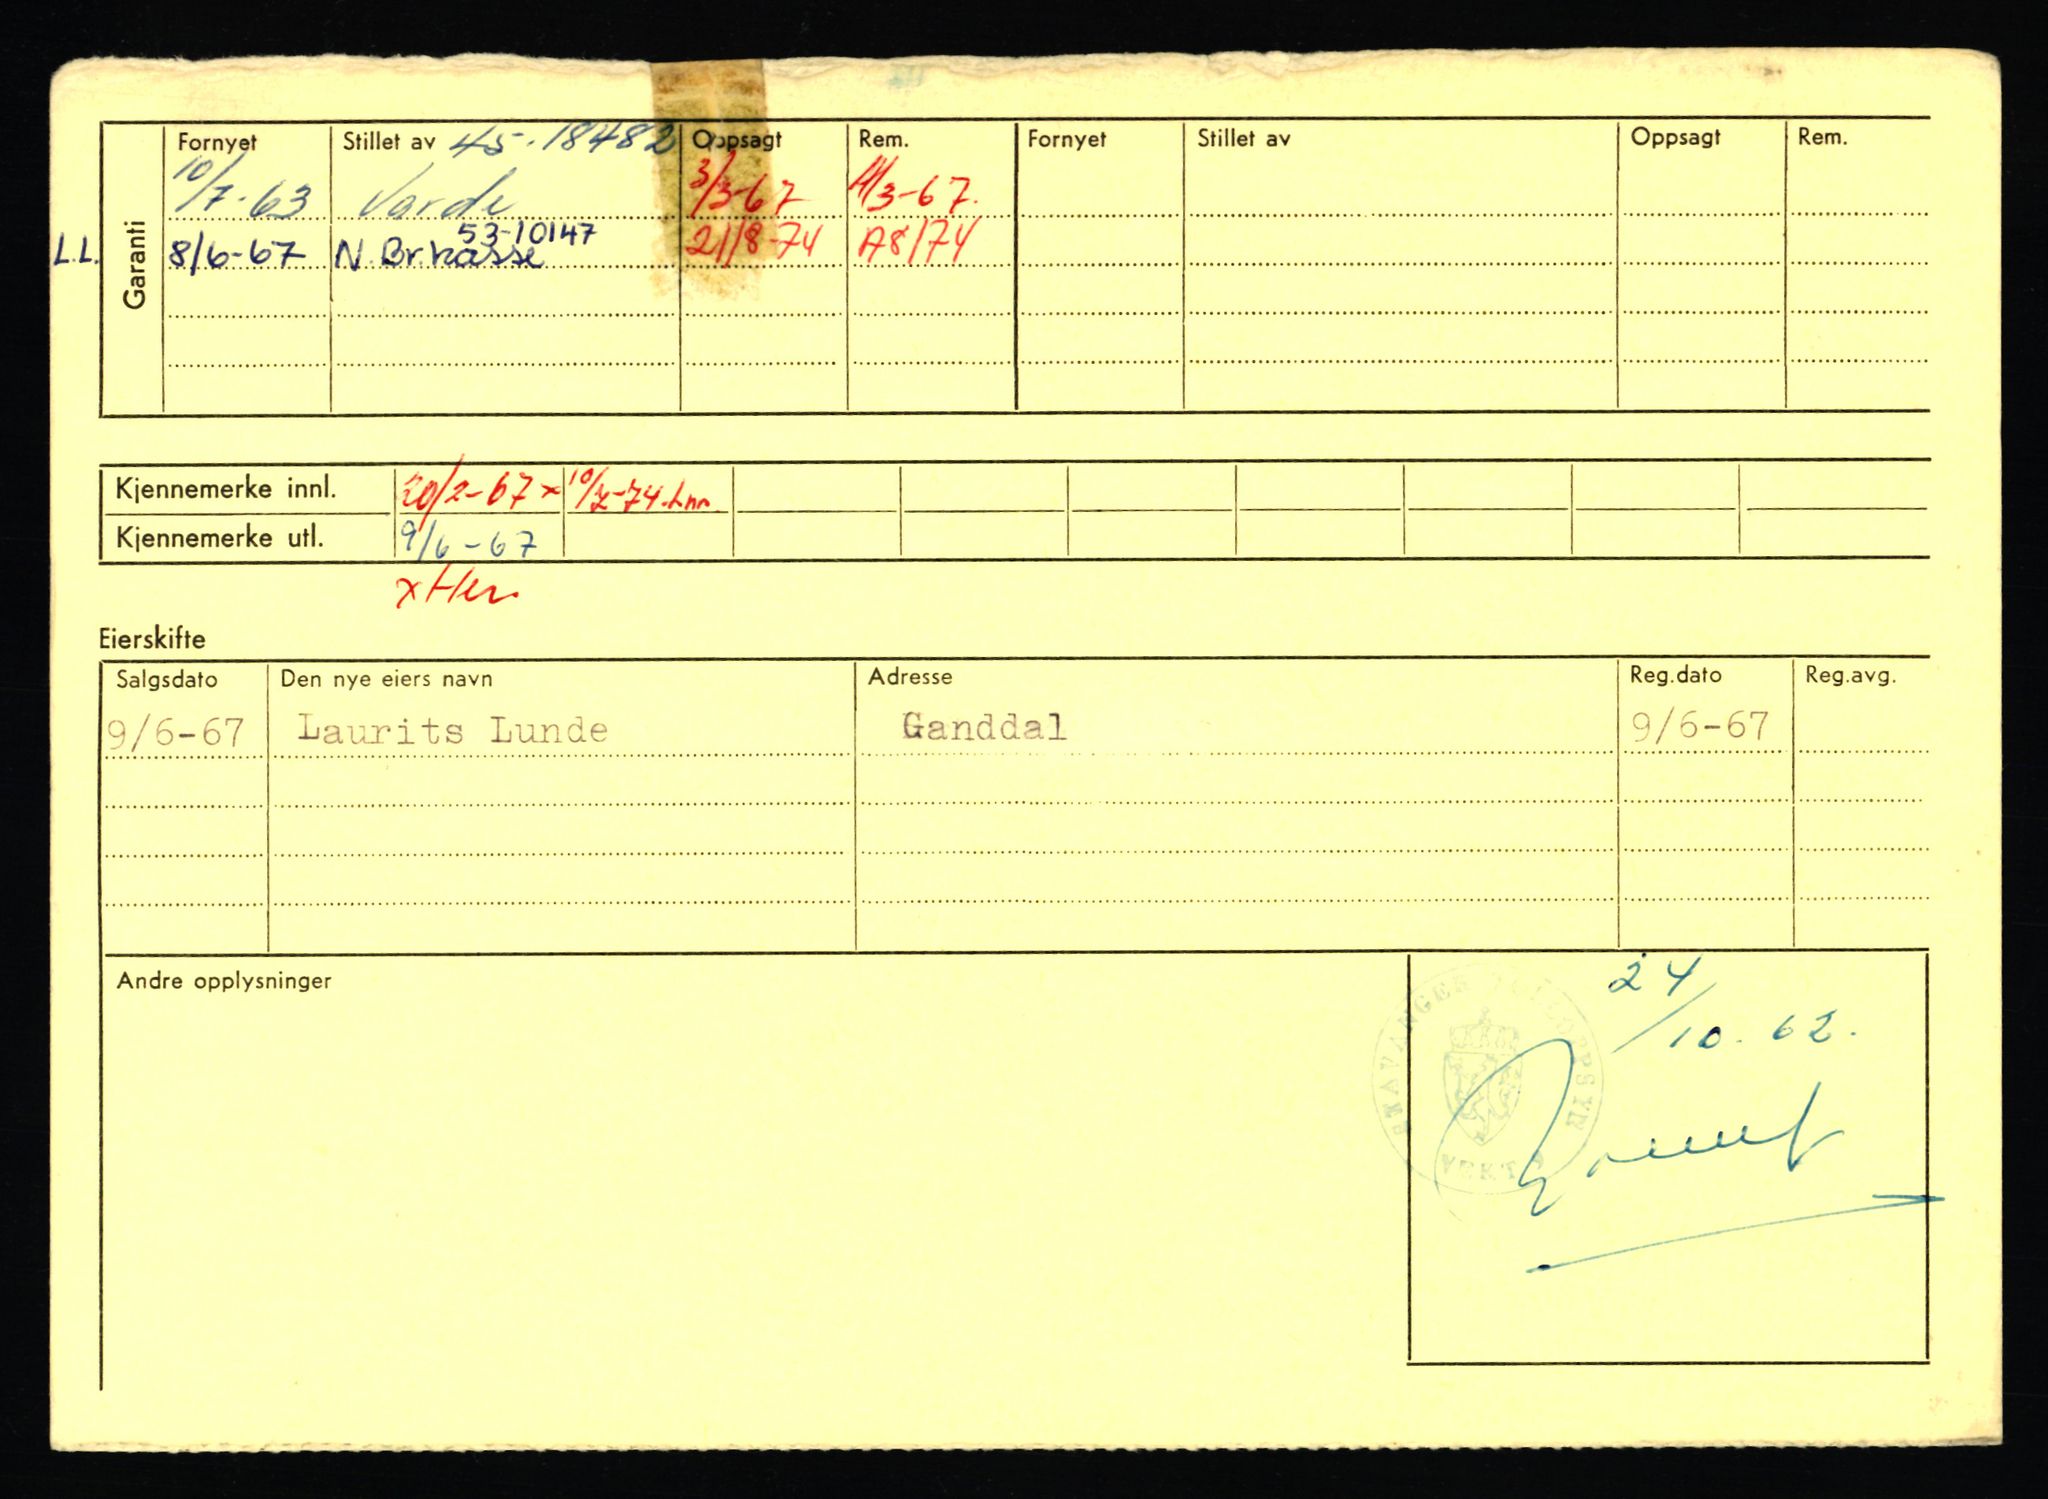 Fornyet Stillet av 45-18482 Oppsagt Rem. Fornyet Stillet av Oppsagt Rem.
Garanti
10/7-63 Varde 3/3-67 11/3-67.
53-10147
L.L. 8/6-67 N. Br.kasse 21/8-74 A8/74
Kjennemerke innl. 20/2-67 x 10/7-74.
Kjennemerke utl. 9/6-67
x Her.
Eierskifte
Salgsdato Den nye eiers navn Adresse Reg.dato Reg.avg.
9/6-67 Laurits Lunde Ganddal 9/6-67
Andre opplysninger
24/10.62.
STAVANGER
VEKT